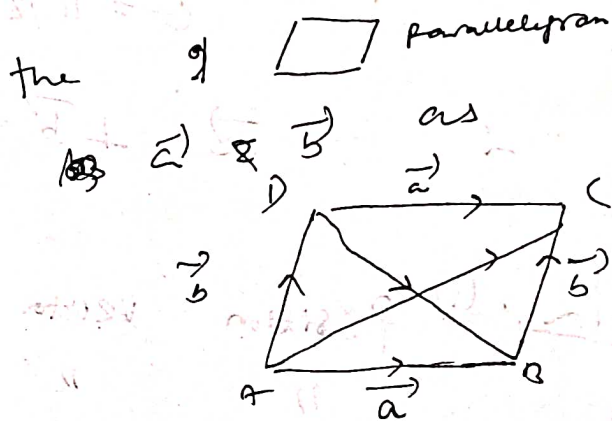 the of parallelgram
a⃗ & b⃗ as
D a⃗ C
b⃗ b⃗
A a⃗ B